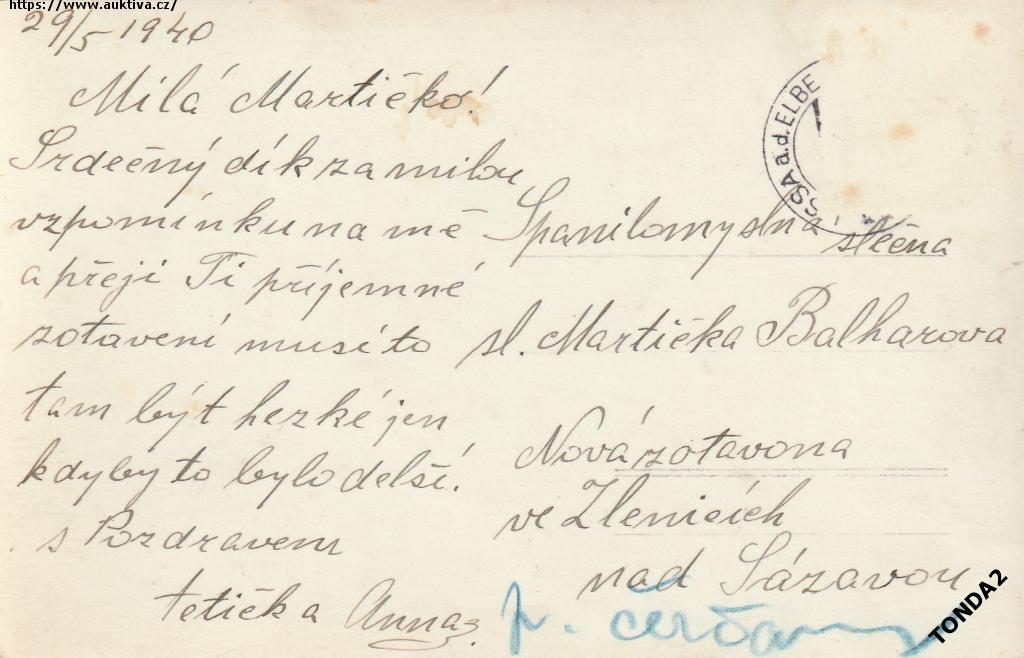 https://www.auktiva.cz/
29/5 1940
Milá Martičko!
Srdečný dík za milou
vzpomínku na mě
a přeji Ti příjemné
zotavení musí to
tam být hezké jen
kdyby to bylo delší.
s Pozdravem
tetička Anna
SSA a.d. ELBE
Spanilomyslná
slečna
sl. Martička Balharova
Nová zotavona
ve Zlenicích
nad Sázavou
p. Čerčany
TONDA2